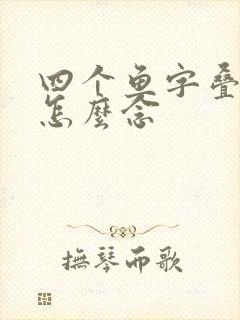 四个鱼字叠
怎麼念
撫琴而歌